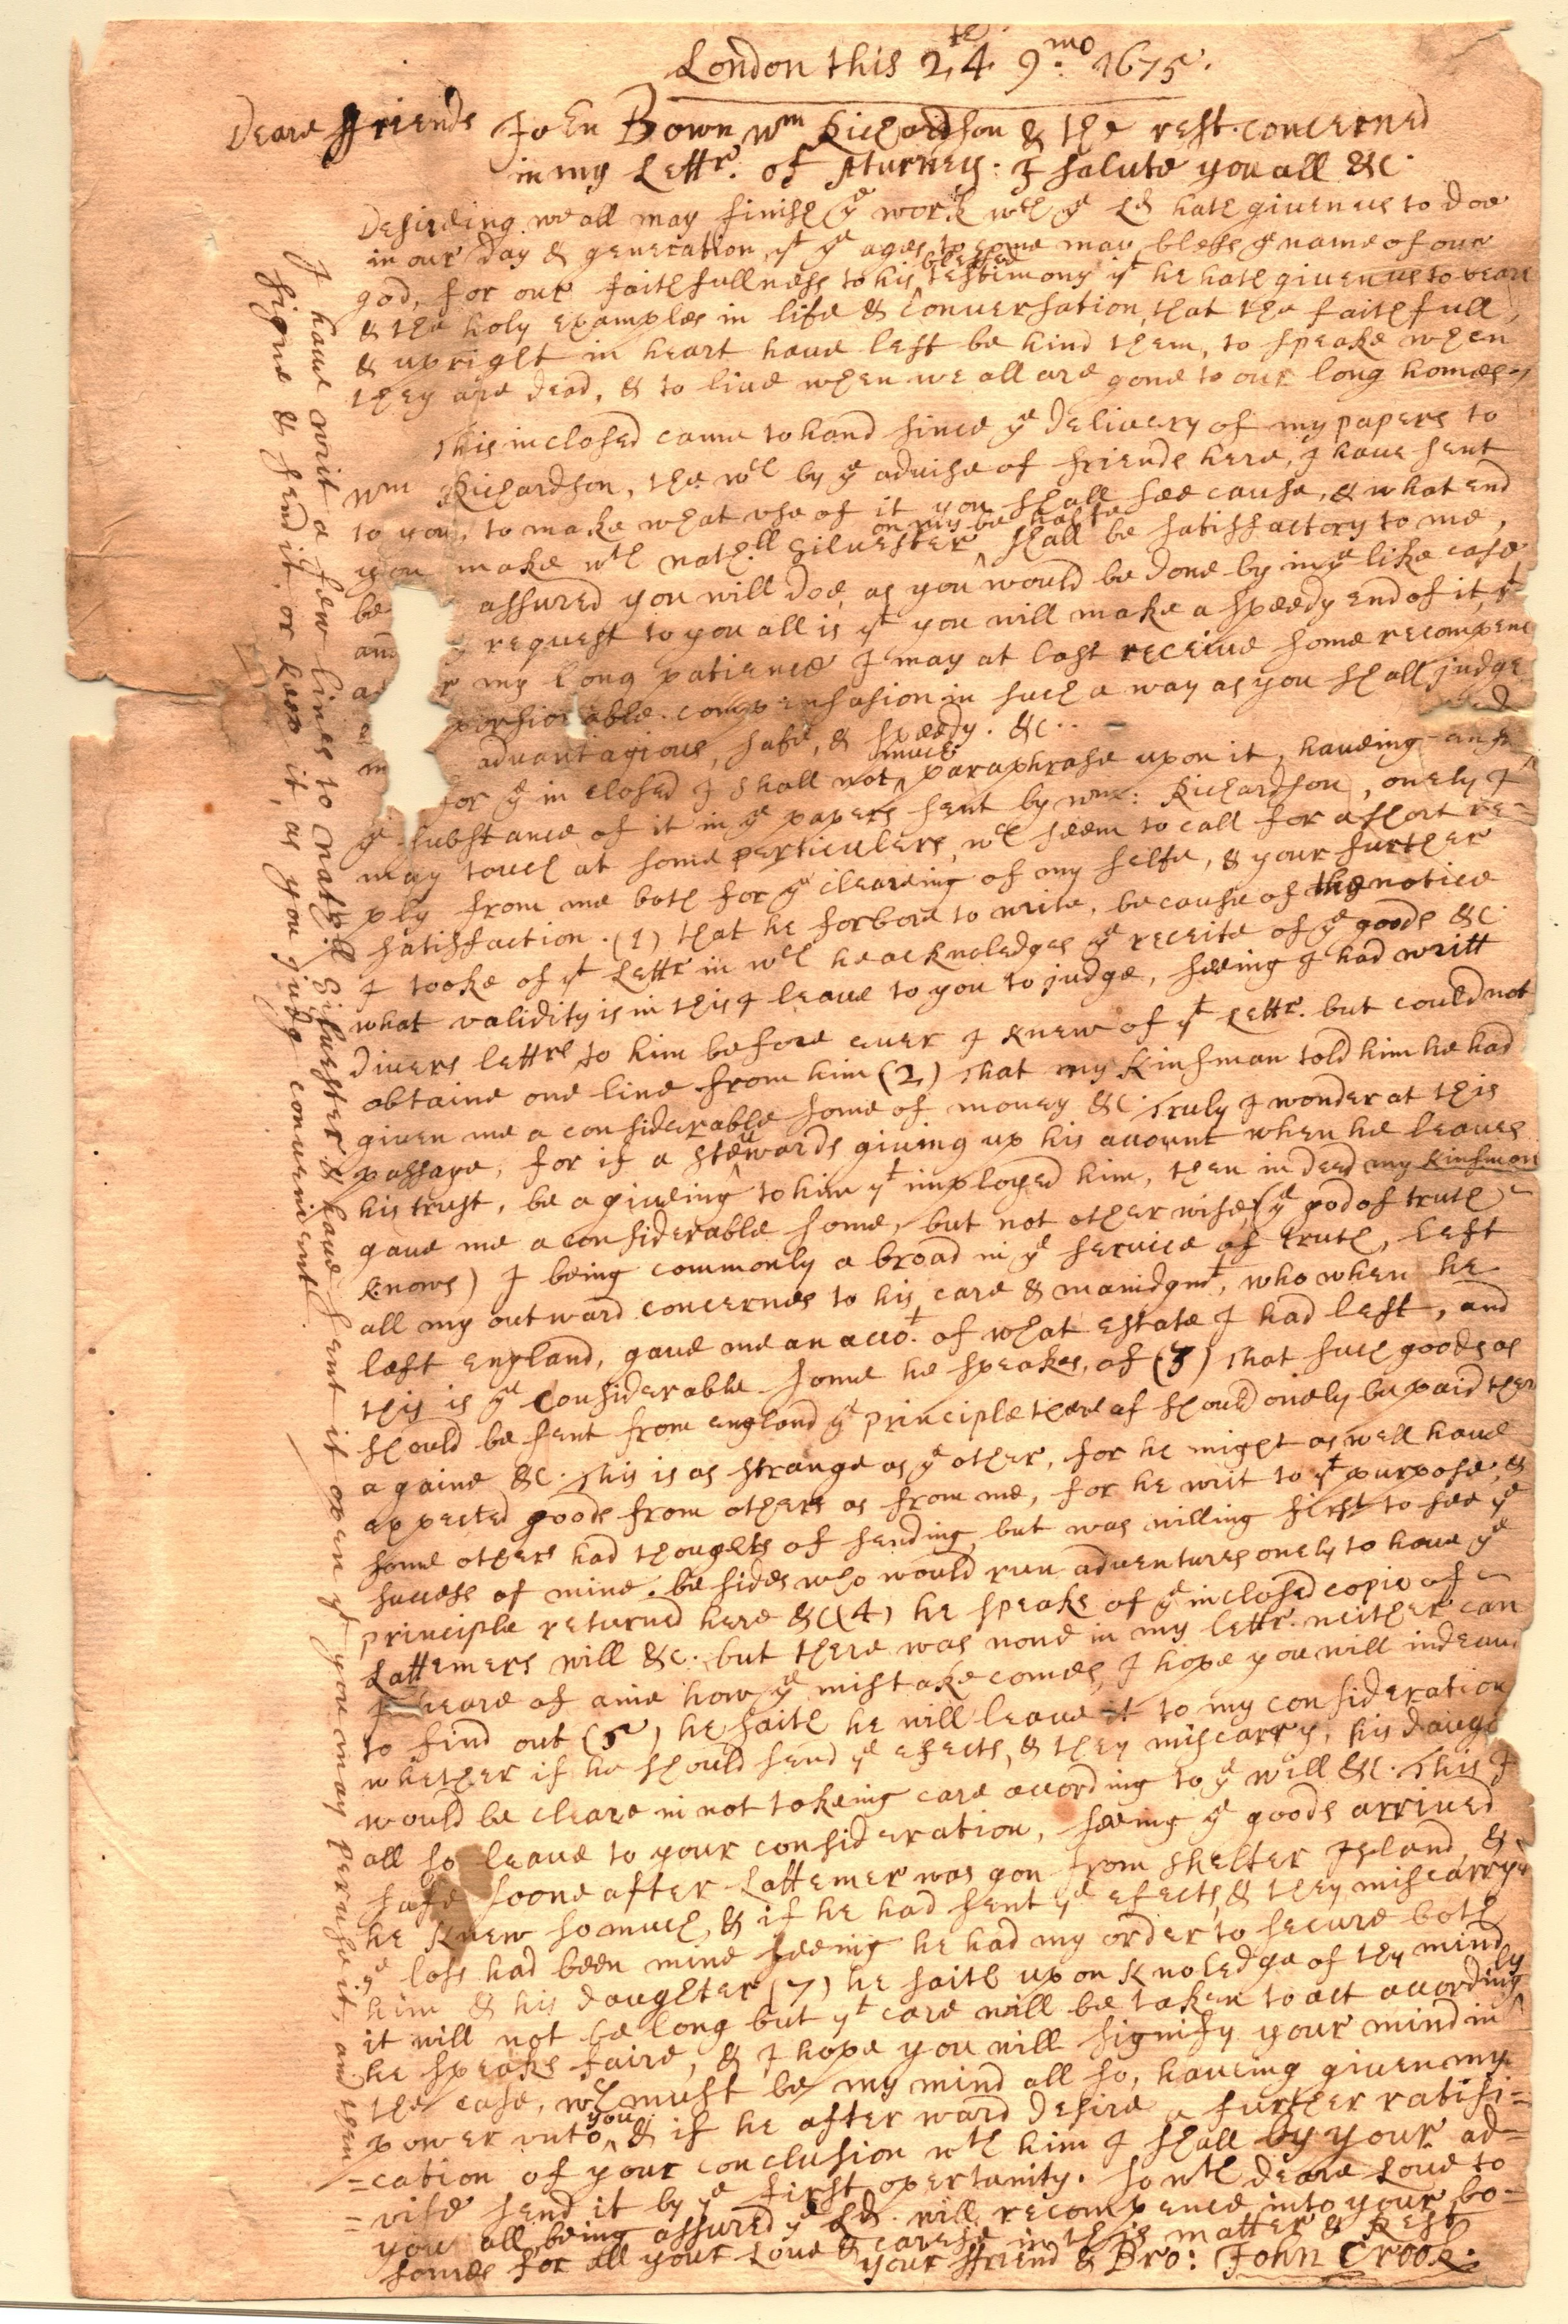 London this 24th 9mo 1675.
Deare ffriends John Bown, Wm Richardson & the rest concerned
in my Lettr. of Aturney: I salute you all &c.
Desireing we all may finish ye work wch ye Ld hath given us to doe
in our day & generation, yt ye ages to come may bless ye name of our
god, for our faithfullness to his blessed testimony yt he hath given us to beare
& the holy examples in life & conversation, that the faithfull,
& upright in heart have left be hind them, to speake when
they are dead, & to live when we all are gone to our long homes
This inclosed came to hand since ye delivery of my papers to
Wm Richardson, the wch by ye advise of friends here, I have sent
to you, to make what use of it you shall see cause, & what end
you make wth Nathll Silvester on my be halfe shall be satisfactory to me,
be assured you will doe, as you would be done by in ye like case
and request to you all is yt you will make a speedy end of it, yt
my long patience I may at last receive some recompence
compensasion in such a way as you shall judge
advantagious, safe, & speedy. &c..
for ye in closed I shall not much paraphrase upon it, haveing
ye substance of it in ye papers sent by Wm: Richardson, onely I
may touch at some perticulers, wch seem to call for a short re=
ply from me both for ye cleareing of my selfe, & your further
satisfaction. (1) that he forbore to write, because of the notice
I tooke of yt Lettr in wch he acknoledges ye receite of ye goods &c.
what validity is in this I leave to you to judge, seeing I had writt
divers lettrs to him before ever I knew of yt Lettr. but could not
obtaine one line from him (2) That my kinsman told him he had
given me a considerable some of money &c. Truly I wonder at this
passage, for if a stewards giving up his acount when he leaves
his trust, be a giveing to him yt imployed him, then in deed my kinsman
gave me a considerable some, but not other wise, (ye god of truth
knows) I being commonly a broad in ye service of truth, left
all my outward concernes to his care & manidgmt, who when he
left England, gave me an acot. of what estate I had left, and
this is ye considerable some he speakes of (3) That such goods as
should be sent from england ye principle there of should onely be paid ther
againe &c. This is as strange as ye other, for he might as well have
expected goods from others as from me, for he writ to yt purpose, &
some others had thoughts of sending, but was willing first to see ye
success of mine. besides who would run adventures onely to have ye
principle returned here &c (4) he speaks of ye inclosed copie of
Lattemers will &c. but there was none in my lettr. neither can
I heare of anie how ye mistake comes, I hope you will indeavr
to find out (5) he saith he will leave it to my consideration
whether if he should send ye efects, & they miscarry, his daugh
would be cleare in not takeing care according to ye will &c. This I
all so leave to your consideration, seeing ye goods arrived
safe soone after Lattemer was gon from Shelter Island, &
he knew so much, & if he had sent ye efects, & they miscarryed
ye loss had been mine seeing he had my order to secure both
him & his daughter (7) he saith upon knoledge of thy mind
it will not be long but yt care will be taken to act accordingly
he speaks faire, & I hope you will signify your mind in
the case, wch must be my mind all so, haveing given my
power unto you, & if he after ward desire a further ratifi=
=cation of your conclusion wth him I shall by your ad=
=vise send it by ye first opertunity. so wth deare love to
you all, being assured ye Ld. will recompence into your bo=
somes for all your Love & care in this matter & Rest
your ffriend & Bro: John Crook.
I have writ a few lines to Nathll Silvester & have sent it open yt you may peruse it, and then
signe & send it, or keep it, as you judg convenient